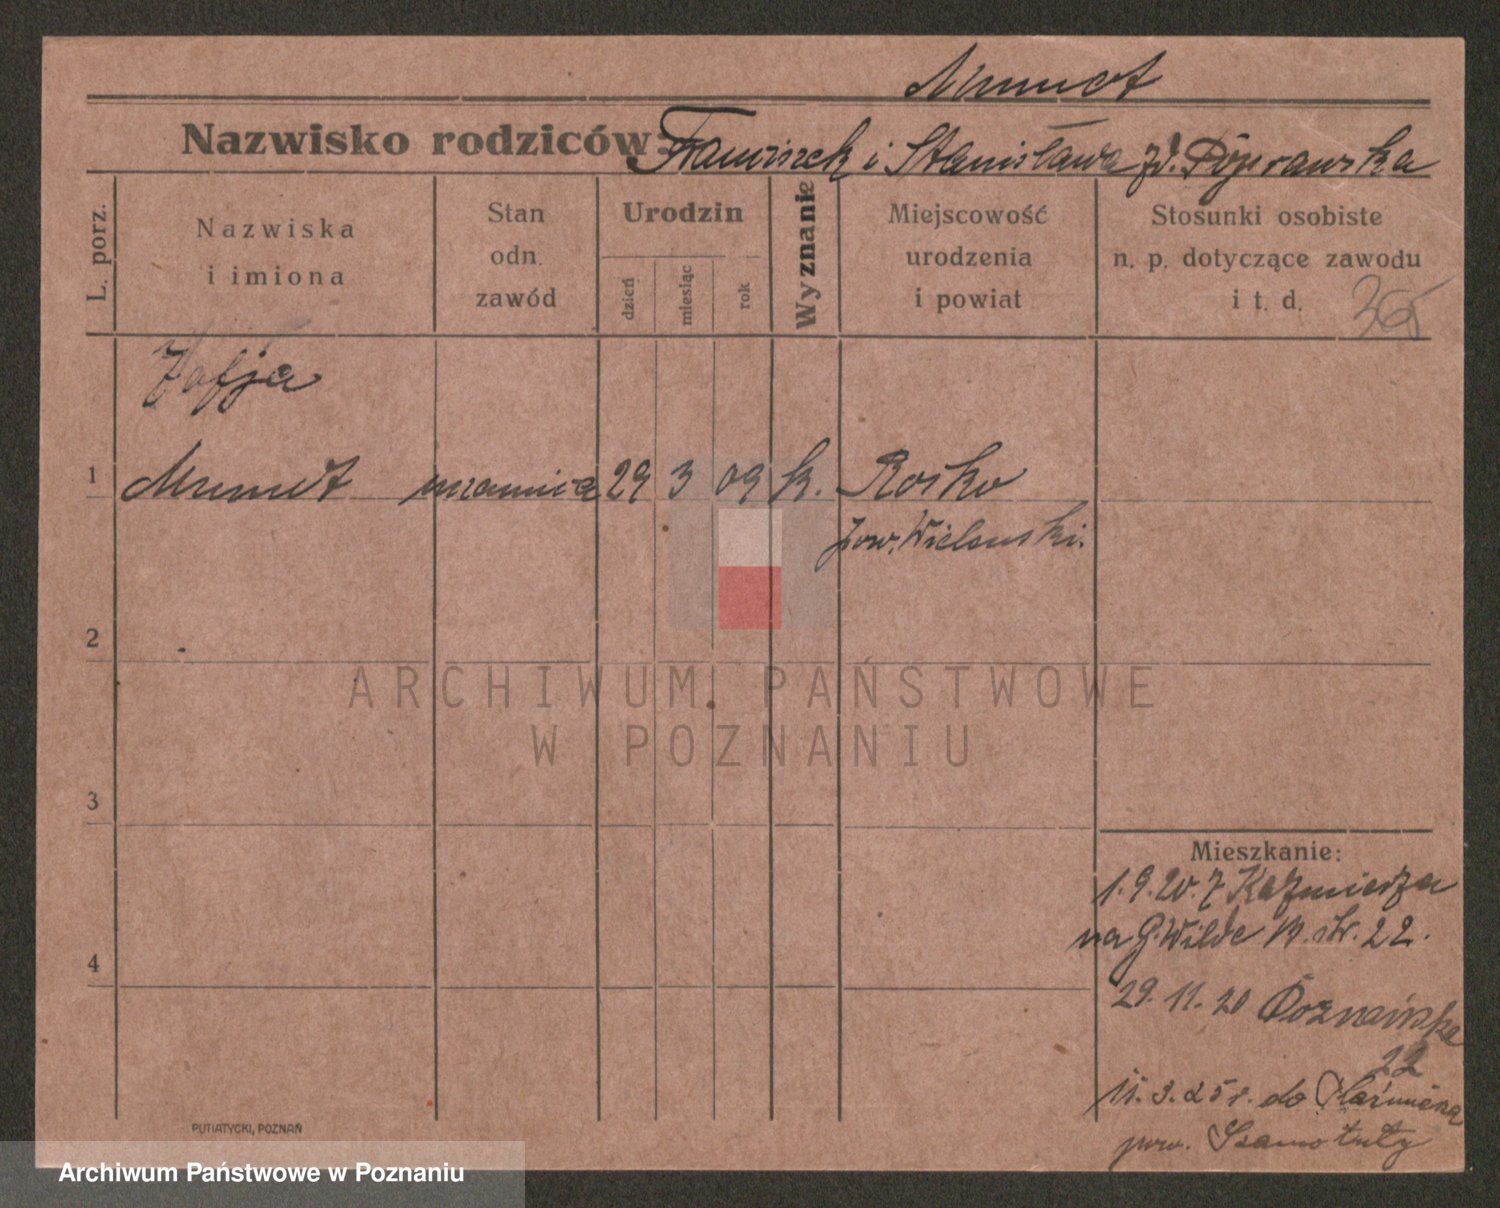 Mumot
Nazwisko rodziców: Franciszek i Stanisława zd. Poprawska
L. porz.
Nazwiska
i imiona
Stan
odn.
zawód
Urodzin
dzień
miesiąc
rok
Wyznanie
Miejscowość
urodzenia
i powiat
Stosunki osobiste
n. p. dotyczące zawodu
i t. d.
Zofja
1 Mumot uczennica 29 3 09 k. Rosko
pow. Wieleński.
2
3
4
Mieszkanie:
1.9.20. z Kaźmierza
na G. Wilde str. 22.
29.11.20 Poznańska
22
11.3.25 r. do Kaźmierza
pow. Szamotuły
PUTIATYCKI, POZNAŃ
ARCHIWUM PAŃSTWOWE
W POZNANIU
Archiwum Państwowe w Poznaniu